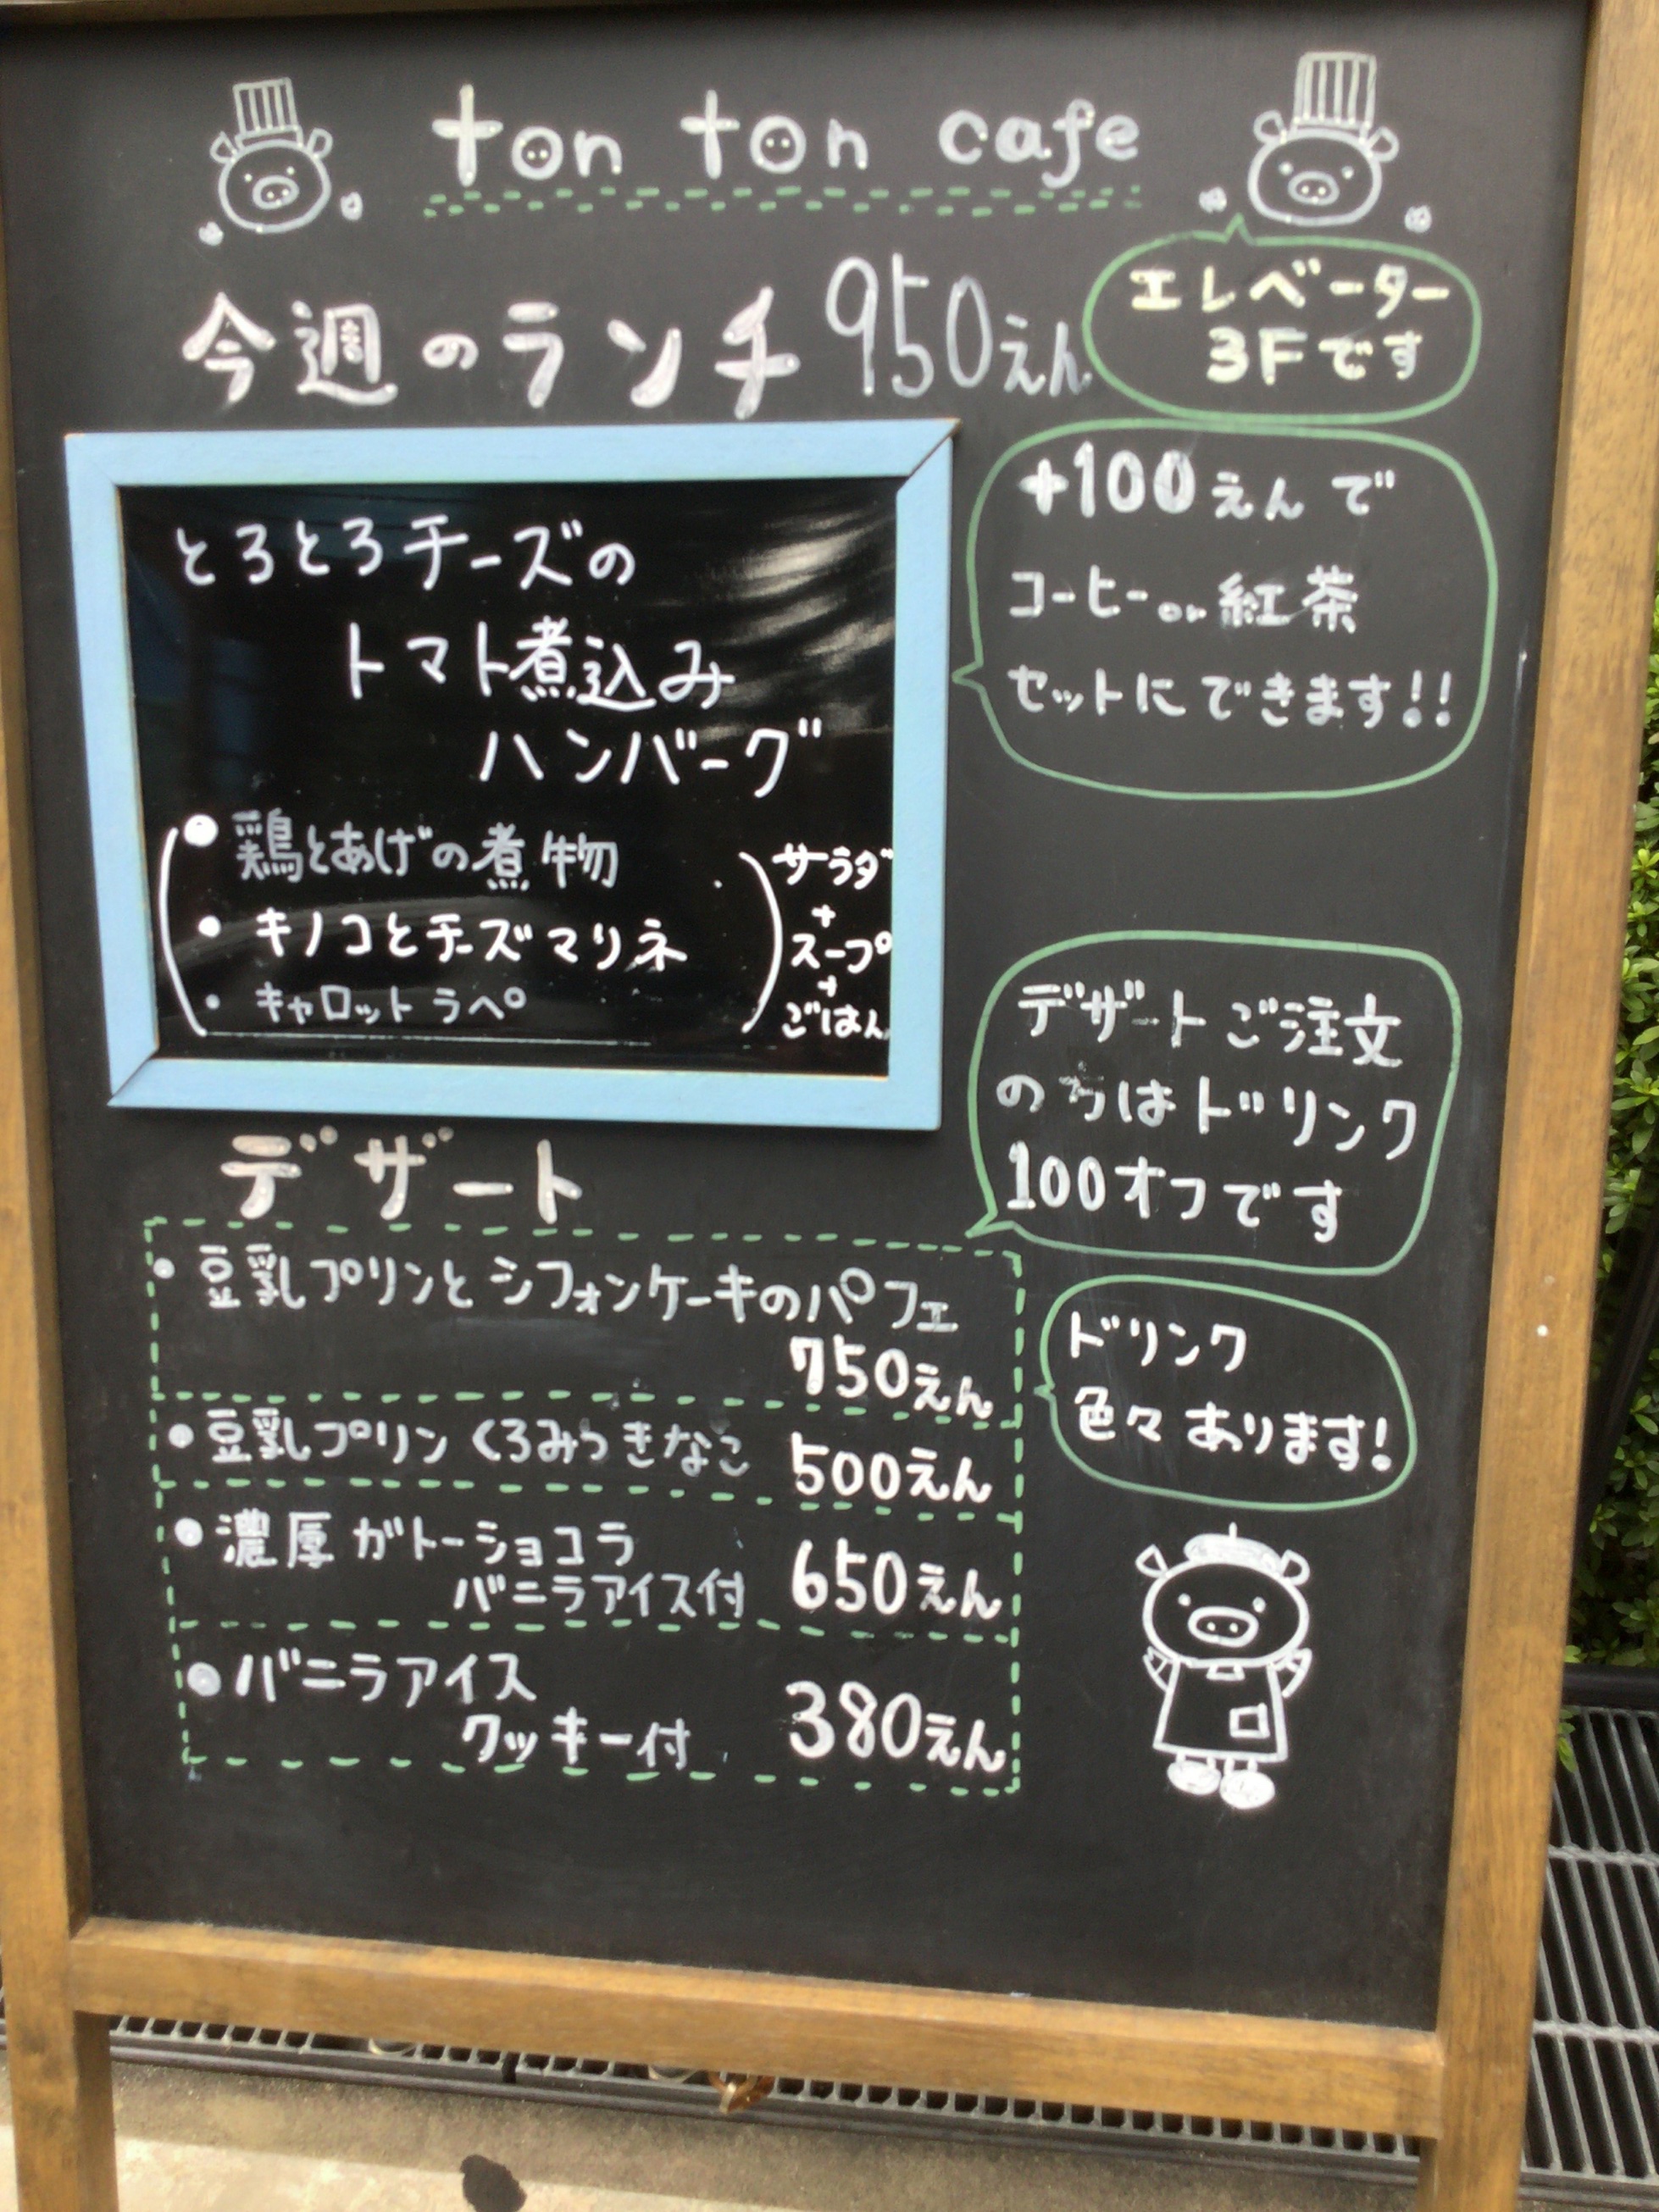 ton ton cafe
今週のランチ 950えん
エレベーター
3Fです
とろとろチーズの
トマト煮込み
ハンバーグ
・鶏とあげの煮物
・キノコとチーズマリネ
・キャロットラペ
サラダ
+
スープ
+
ごはん
+100えんで
コーヒーor紅茶
セットにできます!!
デザートご注文
の方はドリンク
100オフです
デザート
・豆乳プリンとシフォンケーキのパフェ
750えん
・豆乳プリンくろみつきなこ 500えん
・濃厚ガトーショコラ
バニラアイス付 650えん
・バニラアイス
クッキー付 380えん
ドリンク
色々あります!